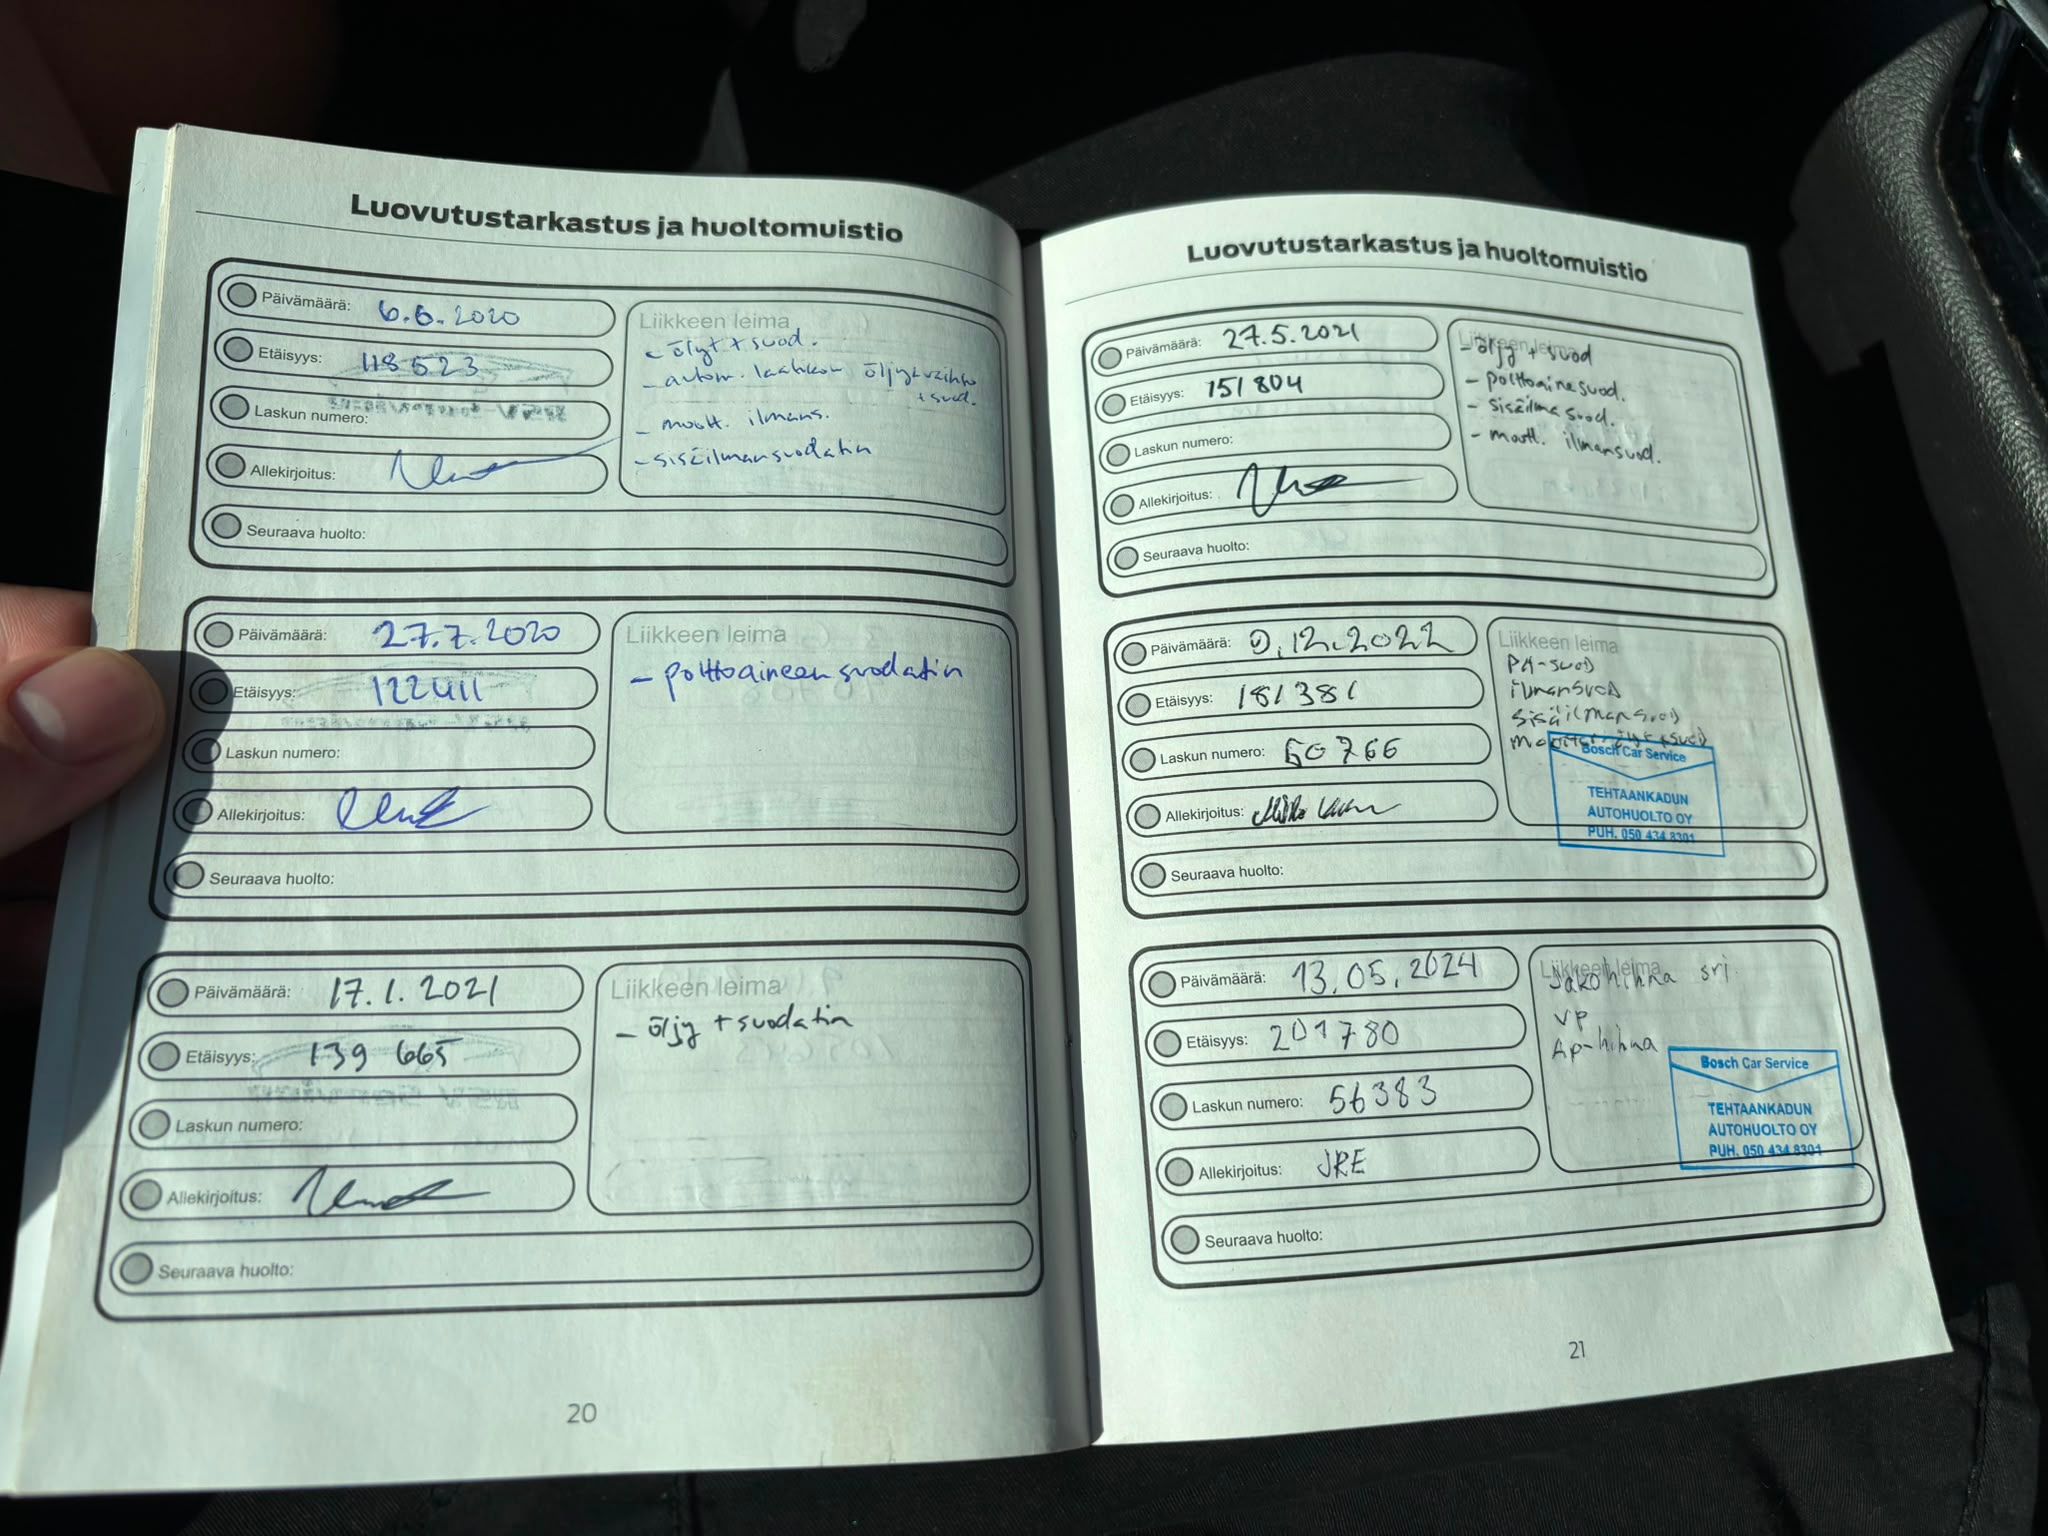 Luovutustarkastus ja huoltomuistio
Päivämäärä: 6.6.2020
Etäisyys: 118523
Laskun numero:
Allekirjoitus:
Seuraava huolto:
Liikkeen leima
- öljyt + suod.
- autom. laatikon öljyt+vaihto
+ suod.
- moott. ilmans.
- sisäilmansuodatin
Päivämäärä: 27.7.2020
Etäisyys: 122411
Laskun numero:
Allekirjoitus:
Seuraava huolto:
Liikkeen leima
- polttoaineen suodatin
Päivämäärä: 17.1.2021
Etäisyys: 139 665
Laskun numero:
Allekirjoitus:
Seuraava huolto:
Liikkeen leima
- öljy + suodatin
20
Luovutustarkastus ja huoltomuistio
Päivämäärä: 27.5.2021
Etäisyys: 151 804
Laskun numero:
Allekirjoitus:
Seuraava huolto:
Liikkeen leima
- öljy + suod
- polttoainesuod.
- sisäilmasuod.
- moott. ilmansuod.
Päivämäärä: 9.12.2022
Etäisyys: 181381
Laskun numero: 50766
Allekirjoitus:
Seuraava huolto:
Liikkeen leima
PA-suod
ilmansuod
sisäilmansuod
Bosch Car Service
TEHTAANKADUN
AUTOHUOLTO OY
PUH. 050 434 8301
Päivämäärä: 13.05.2024
Etäisyys: 201780
Laskun numero: 56383
Allekirjoitus: JRE
Seuraava huolto:
Liikkeen leima
Jakohihna sri
VP
Ap-hihna
Bosch Car Service
TEHTAANKADUN
AUTOHUOLTO OY
PUH. 050 434 8301
21